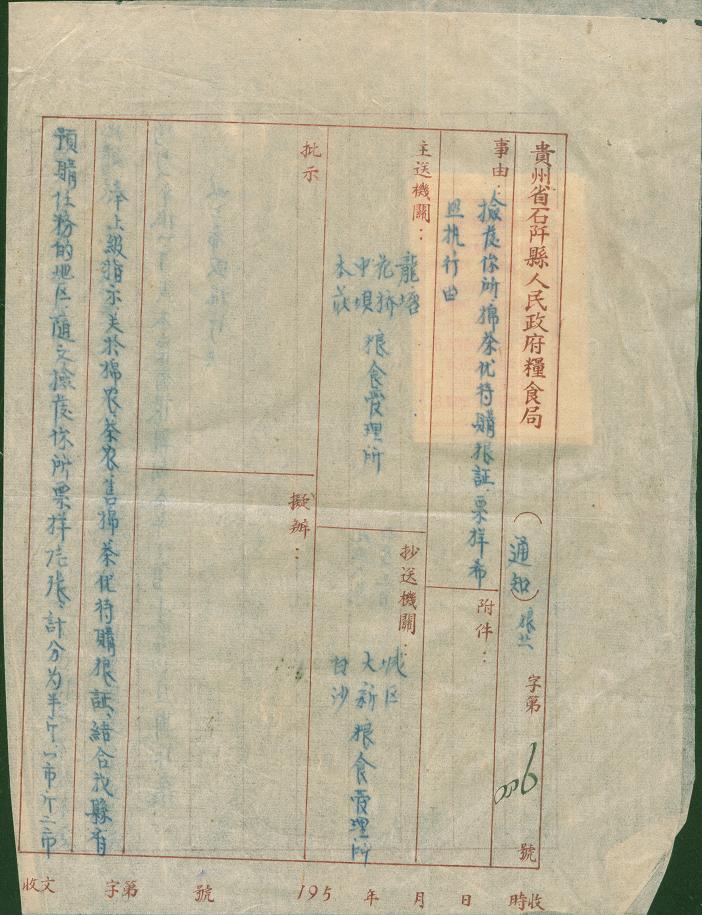 貴州省石阡縣人民政府糧食局
（通知）粮共字第006號
事由：撿发你所棉茶优待購粮証票样希
照执行由
附件：
主送機關：
龍塘
花桥
中壩
本莊
粮食管理所
抄送機關：
城区
大新
白沙
粮食管理所
批示
擬辦：
奉上級指示关於棉农、茶农售棉茶优待購粮証、結合我縣有
預購任务的地区、随文撿发你所票样弍张、計分为半斤、一市斤、二市
收文 字第 號 195 年 月 日 時收